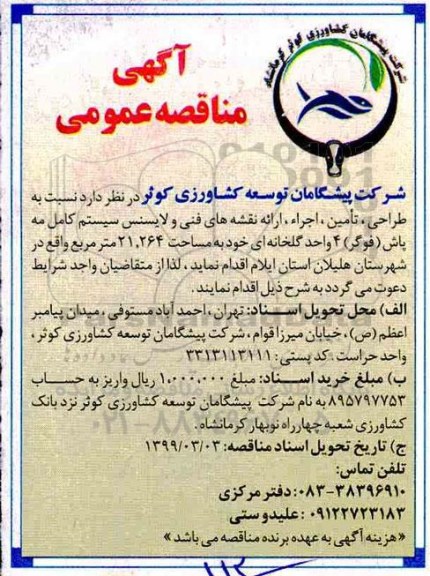 شرکت پیشگامان کشاورزی کوثر کرمانشاه
آگهی
مناقصه عمومی
شرکت پیشگامان توسعه کشاورزی کوثر در نظر دارد نسبت به
طراحی ، تأمین ، اجراء ، ارائه نقشه های فنی و لایسنس سیستم کامل مه
پاش (فوگر) ۴ واحد گلخانه ای خود به مساحت ۲۱,۲۶۴ متر مربع واقع در
شهرستان هلیلان استان ایلام اقدام نماید ، لذا از متقاضیان واجد شرایط
دعوت می گردد به شرح ذیل اقدام نمایند.
الف) محل تحویل اسناد: تهران ، احمد آباد مستوفی ، میدان پیامبر
اعظم (ص) ، خیابان میرزا قوام ، شرکت پیشگامان توسعه کشاورزی کوثر ،
واحد حراست ، کد پستی : ۳۳۱۳۱۱۳۱۱۱
ب) مبلغ خرید اسناد: مبلغ ۱,۰۰۰,۰۰۰ ریال واریز به حساب
۸۹۵۷۹۷۷۵۳ به نام شرکت پیشگامان توسعه کشاورزی کوثر نزد بانک
کشاورزی شعبه چهارراه نوبهار کرمانشاه.
ج) تاریخ تحویل اسناد مناقصه: ۱۳۹۹/۰۳/۰۳
تلفن تماس:
۰۸۳-۳۸۳۹۶۹۱۰: دفتر مرکزی
۰۹۱۲۲۷۲۳۱۸۳ : علیدوستی
«هزینه آگهی به عهده برنده مناقصه می باشد»